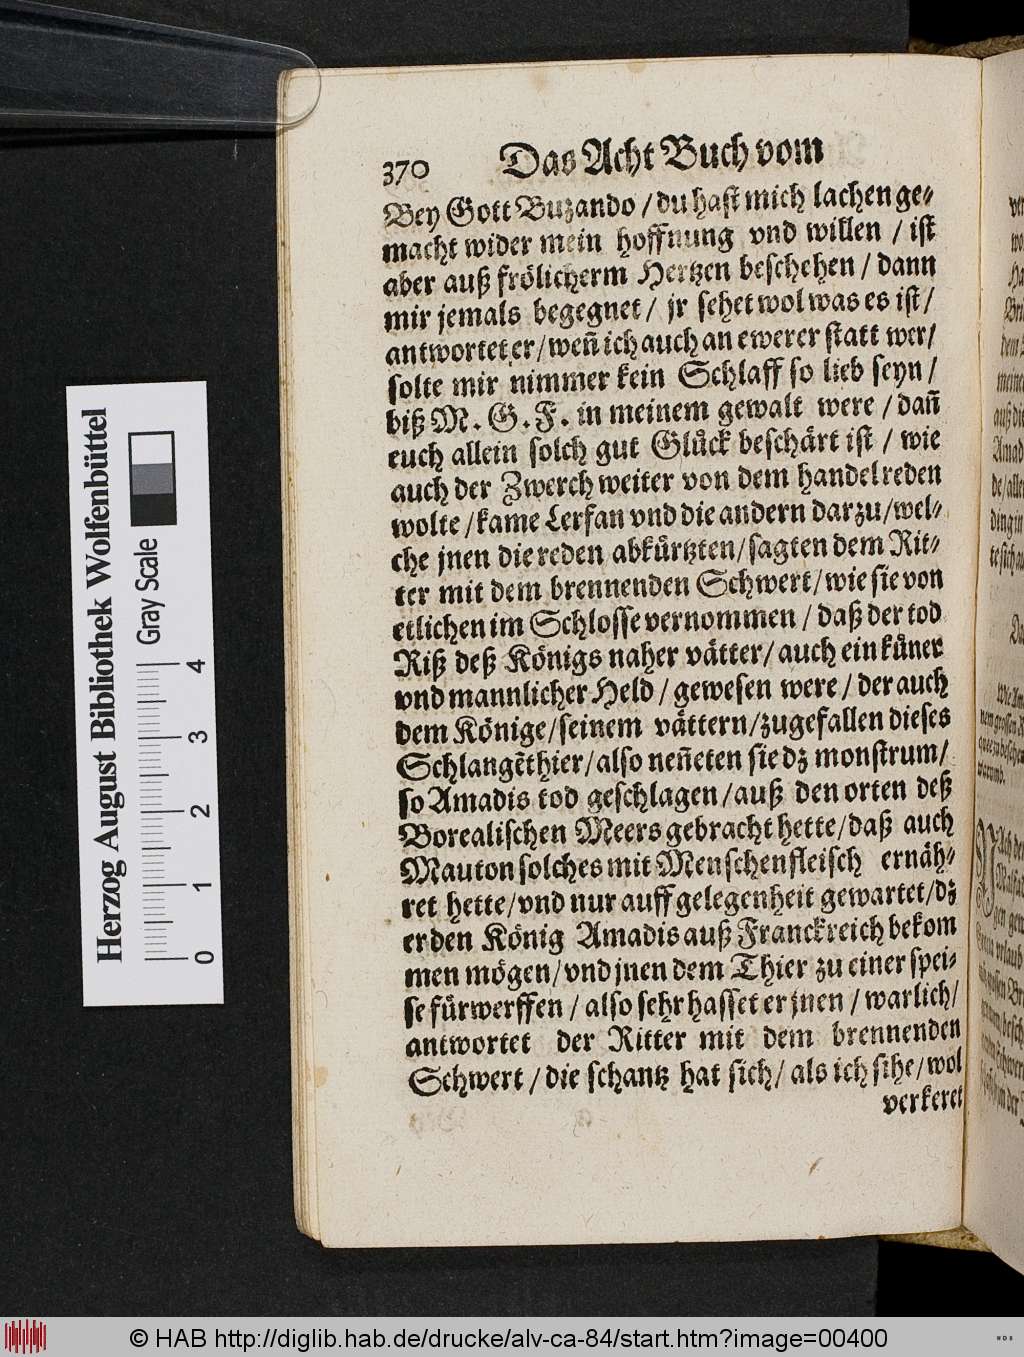 370 Das Acht Buch vom
Bey Gott Buzando / du hast mich lachen ge-
macht wider mein hoffnung vnd willen / ist
aber auß frölicherm Hertzen beschehen / dann
mir jemals begegnet / jr sehet wol was es ist /
antwortet er / weñ ich auch an ewerer statt wer /
solte mir nimmer kein Schlaff so lieb seyn /
biß M. G. F. in meinem gewalt were / dañ
euch allein solch gut Glück beschärt ist / wie
auch der Zwerch weiter von dem handel reden
wolte / kame Lerfan vnd die andern darzu / wel-
che jnen die reden abkürtzten / sagten dem Rit-
ter mit dem brennenden Schwert / wie sie von
etlichen im Schlosse vernommen / daß der tod
Riß deß Königs naher vätter / auch ein küner
vnd mannlicher Held / gewesen were / der auch
dem Könige / seinem vättern / zugefallen dieses
Schlangẽthier / also neñeten sie dz monstrum /
so Amadis tod geschlagen / auß den orten deß
Borealischen Meers gebracht hette / daß auch
Mauton solches mit Menschenfleisch ernäh-
ret hette / vnd nur auff gelegenheit gewartet / dz
er den König Amadis auß Franckreich bekom
men mögen / vnd jnen dem Thier zu einer spei-
se fürwerffen / also sehr hasset er jnen / warlich /
antwortet der Ritter mit dem brennenden
Schwert / die schantz hat sich / als ich sihe / wol
verkeret
Herzog August Bibliothek Wolfenbüttel
Gray Scale
0 1 2 3 4
© HAB http://diglib.hab.de/drucke/alv-ca-84/start.htm?image=00400